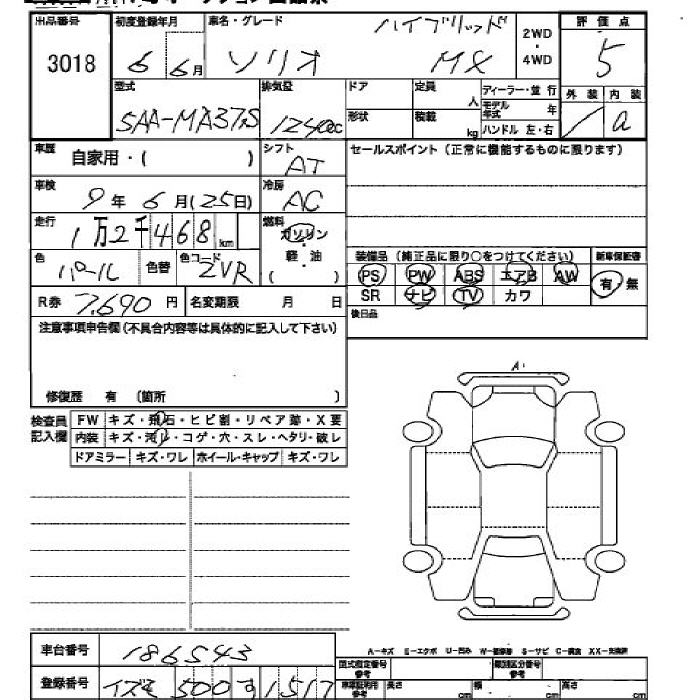 出品番号 初度登録年月 車名・グレード ハイブリッド 2WD・4WD 評価点
3018 6 6月 ソリオ MX 5
型式 排気量 ドア 定員 人 ディーラー・並行 外装 内装
SAA-MA37S 1240cc 形状 積載 kg モデル年式 年 ハンドル 左・右 a
車歴 自家用・( ) シフト AT セールスポイント(正常に機能するものに限ります)
車検 9年6月(25日) 冷房 AC
走行 1万2千468km 燃料 ガソリン・軽油 ( )
色 パール 色替 色コード ZVR 装備品(純正品に限り○をつけてください) 新車保証書
PS PW ABS エアB AW 有・無
R券 7,690円 名変期限 月 日 SR ナビ TV カワ
注意事項申告欄(不具合内容等は具体的に記入して下さい) 後日品
修復歴 有 (箇所 )
検査員記入欄 FW キズ・飛石・ヒビ割・リペア跡・X要
内装 キズ・汚レ・コゲ・穴・スレ・ヘタリ・破レ
ドアミラー キズ・ワレ ホイール・キャップ キズ・ワレ
A
A-キズ E-エクボ U-凹み
車台番号 186543 型式指定番号 参考 類別区分番号 参考
登録番号 イズミ 500 す 1517 長さ cm 幅 cm 高さ cm